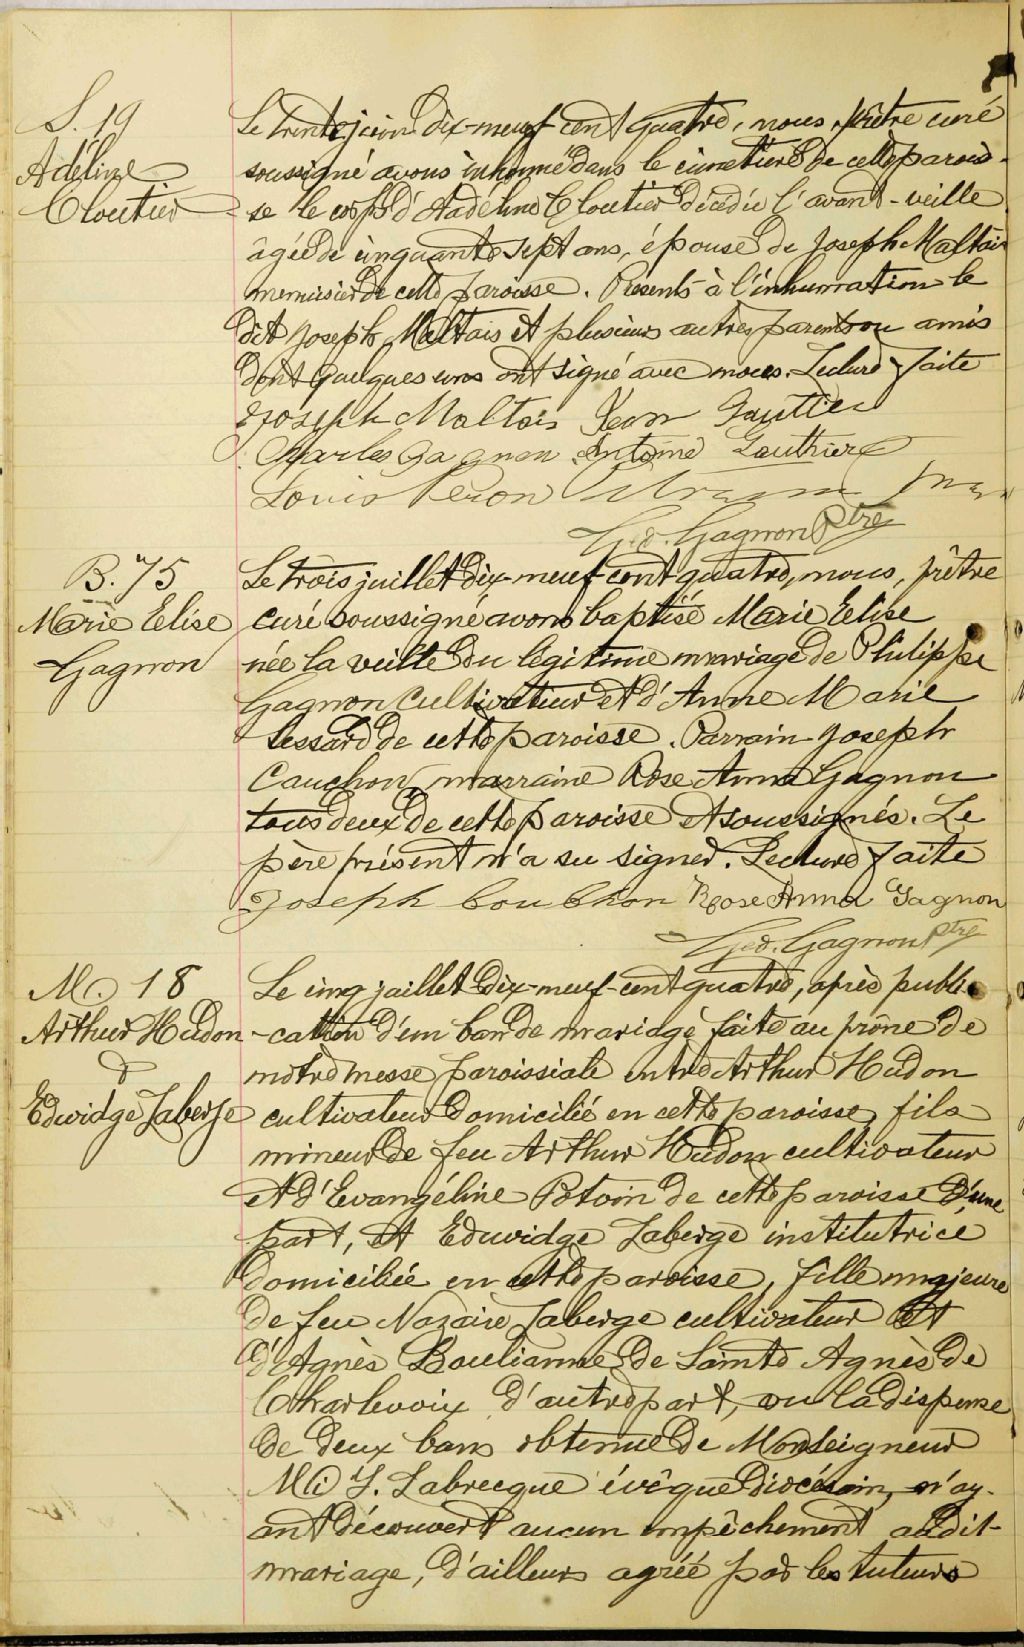 S. 19
Adéline
Cloutier
Le trente juin dix-neuf-cent quatre, nous, prêtre curé
soussigné avons inhumé dans le cimetière de cette parois-
se le corps d'Adéline Cloutier décédée l'avant-veille
âgée de cinquante sept ans, épouse de Joseph Maltais
menuisier de cette paroisse. Présents à l'inhumation le
dit Joseph Maltais et plusieurs autres parents ou amis
dont quelques uns ont signé avec nous. Lecture faite
Joseph Maltais Jean Gautier
Charles Gagnon Antoine Gauthier
Louis Peron
Ged. Gagnon Ptre
B. 75
Marie Elise
Gagnon
Le trois juillet dix-neuf-cent quatre, nous, prêtre
curé soussigné avons baptisé Marie Elise
née la veille du légitime mariage de Philippe
Gagnon cultivateur et d'Anne Marie
Lessard de cette paroisse. Parrain Joseph
Cauchon, marraine Rose Anna Gagnon
tous deux de cette paroisse et soussignés. Le
père présent n'a su signer. Lecture faite
Joseph Couchon Rose Anna Gagnon
Ged. Gagnon Ptre
M. 18
Arthur Hudon
&
Edwidge Laberge
Le cinq juillet dix-neuf-cent quatre, après publi-
-cation d'un ban de mariage faite au prône de
notre messe paroissiale entre Arthur Hudon
cultivateur domicilié en cette paroisse, fils
mineur de feu Arthur Hudon cultivateur
et d'Evangéline Potvin de cette paroisse d'une
part, et Edwidge Laberge institutrice
domiciliée en cette paroisse, fille majeure
de feu Nazaire Laberge cultivateur et
d'Agnès Boulianne de Sainte Agnès de
Charlevoix d'autre part, vu la dispense
de deux bans obtenue de Monseigneur
M. T. Labrecque évêque diocésain, n'ay-
ant découvert aucun empêchement au dit-
mariage, d'ailleurs agréé par les tuteurs